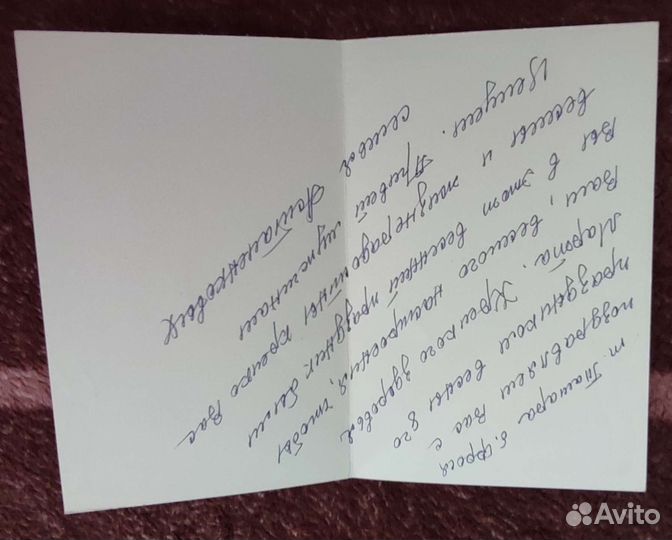 т. Тамара б. Фрося
поздравляем Вас с
праздником весны 8го
Марта. Крепкого здоровья
Вам, веселого настроения, чтобы
Вы в этот весенний праздник были
веселы и жизнерадостны крепко Вас
целуем. Привет мужчинам
семья
Avito